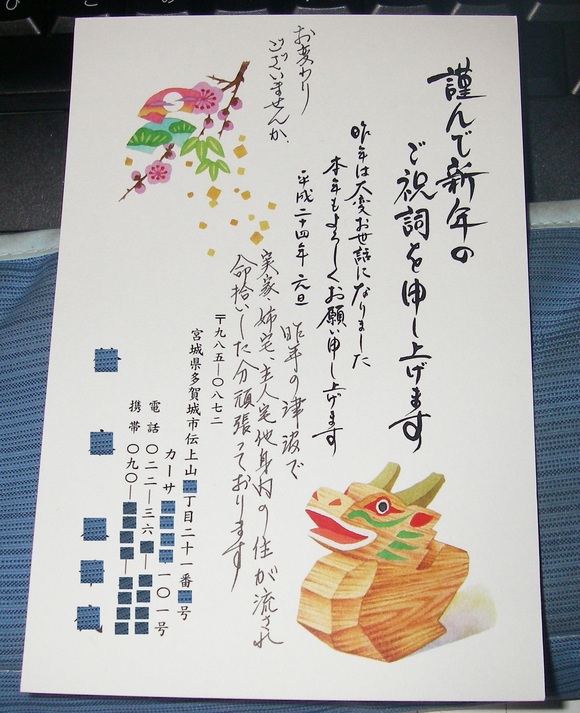 謹んで新年の
ご祝詞を申し上げます
昨年は大変お世話になりました
本年もよろしくお願い申し上げます
平成二十四年 元旦
お変わり
ございませんか。
昨年の津波で
実家、姉宅、主人宅他身内の住が流され
命拾いした分頑張っております
〒九八五―〇八七二
宮城県多賀城市伝上山 丁目二十一番 号
カーサ 一〇一号
電話 〇二二―三六
携帯 〇九〇―